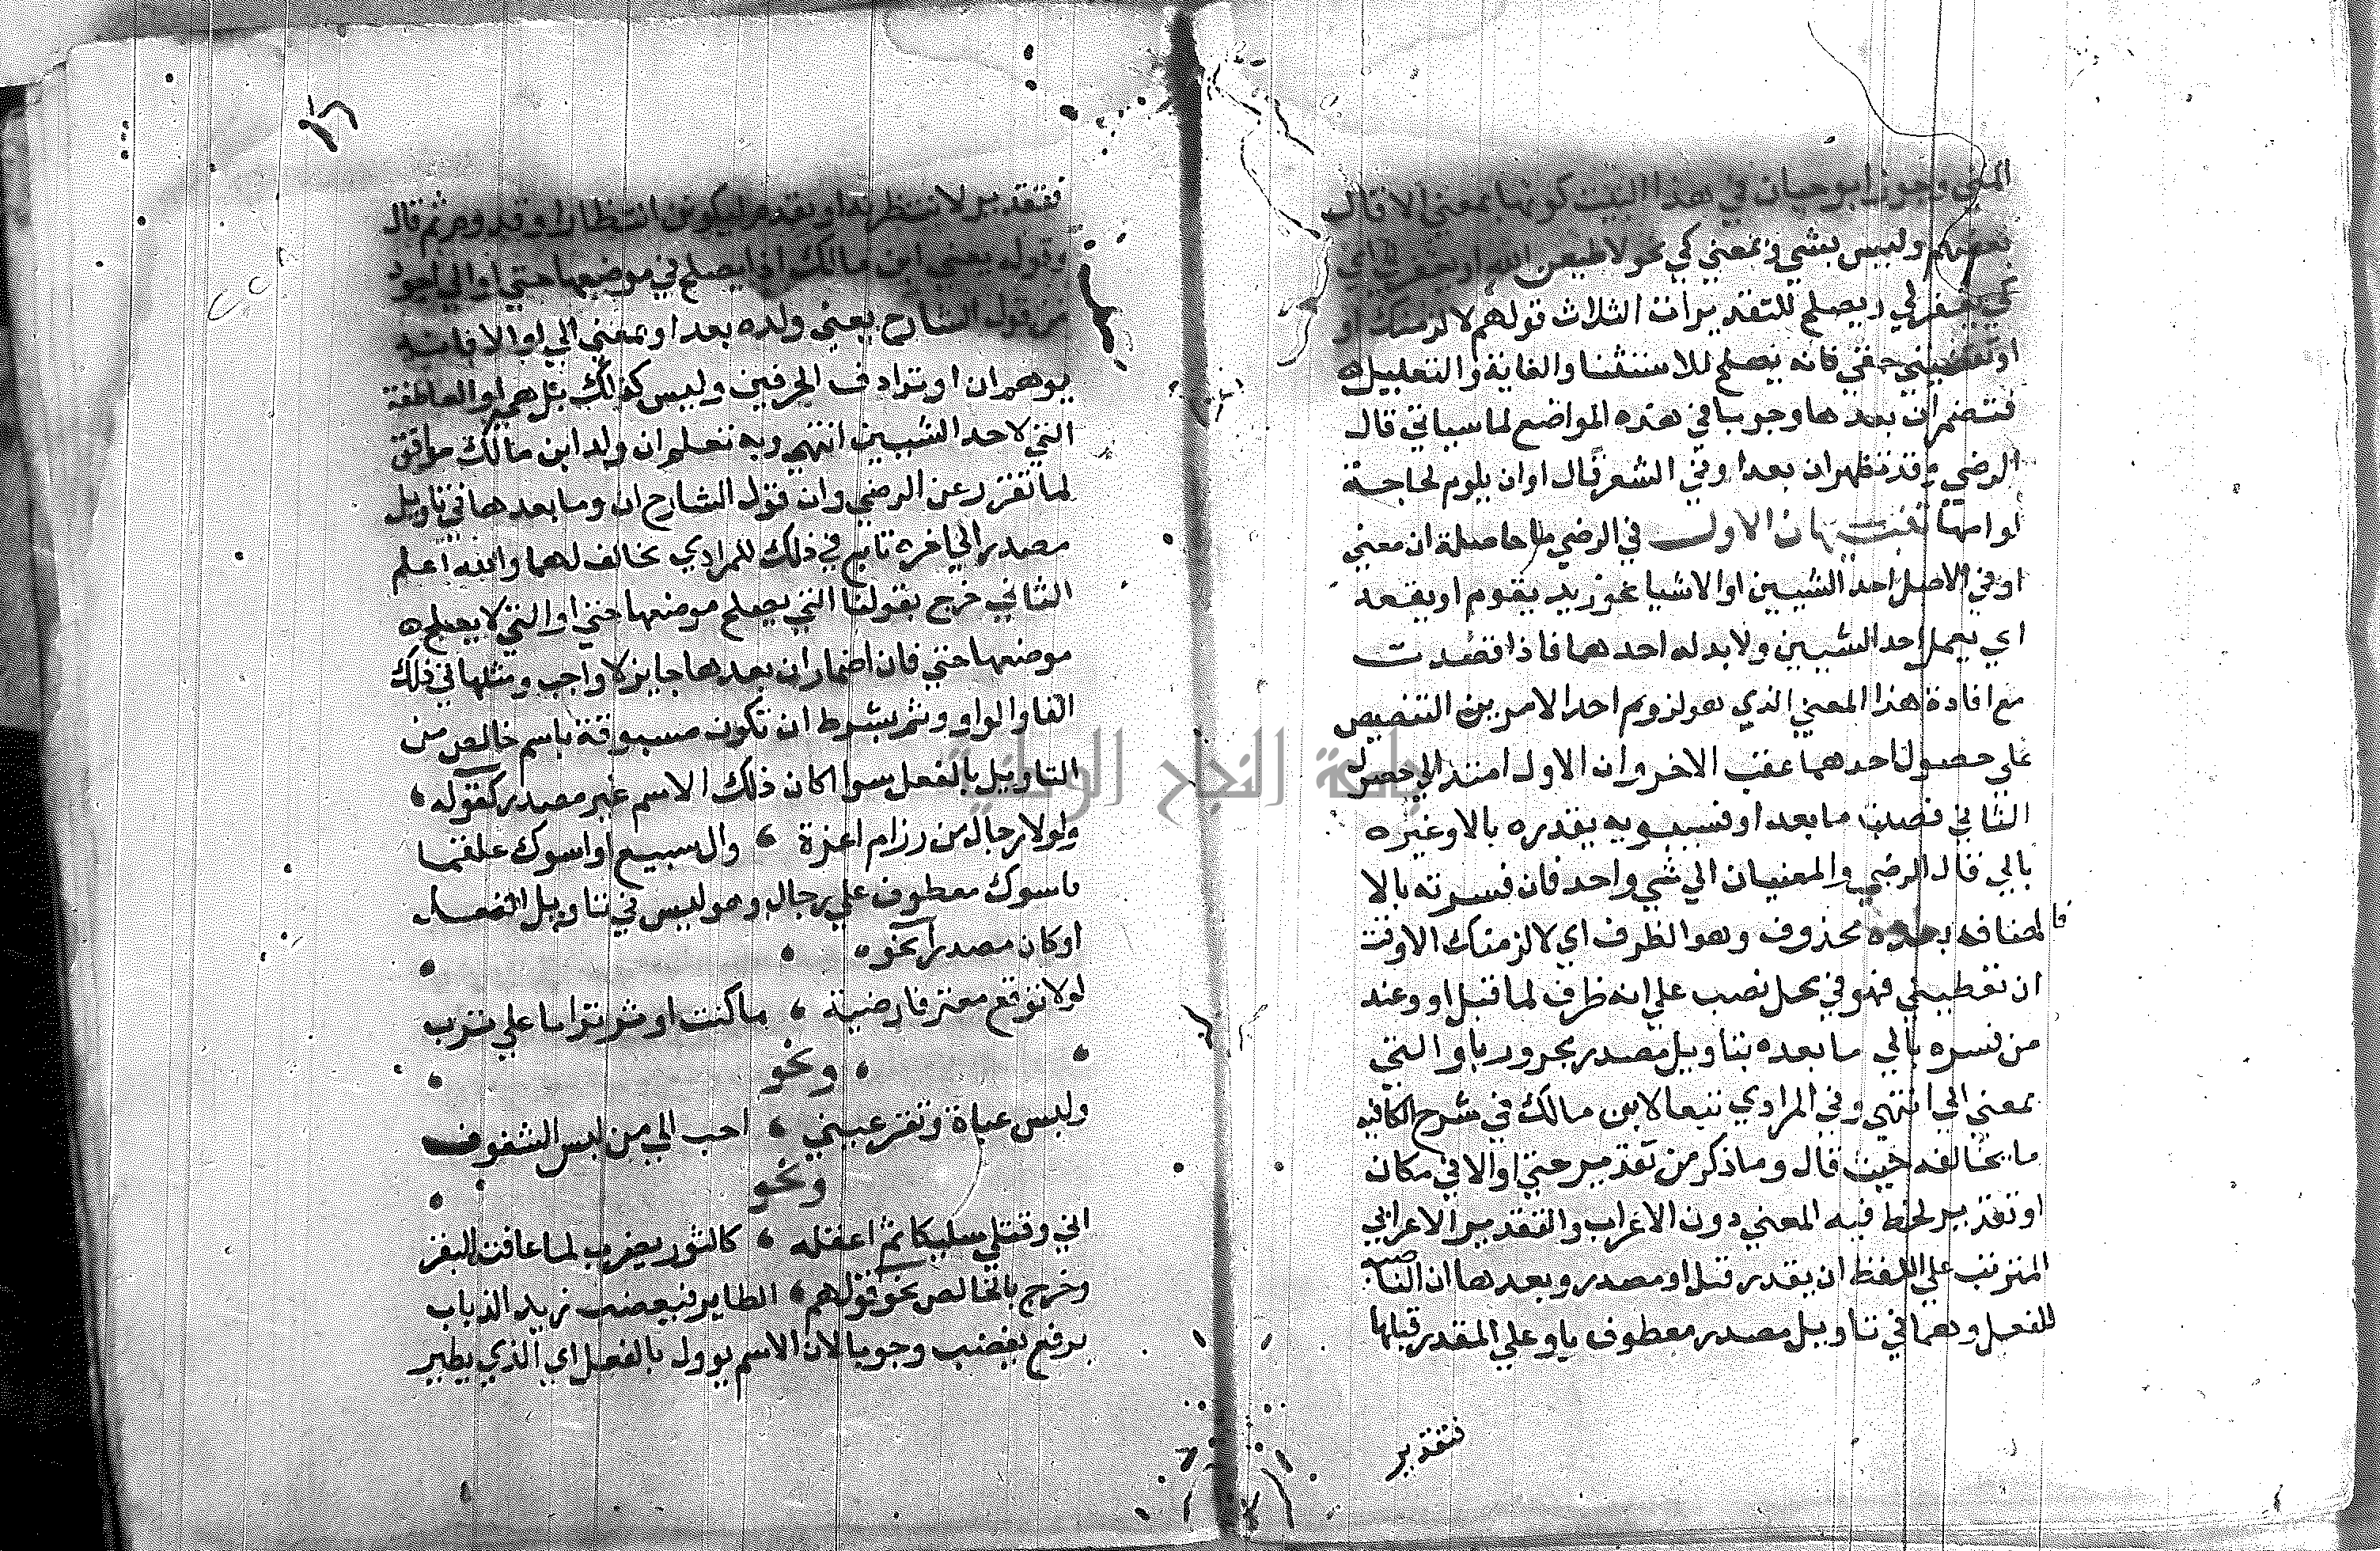 المني وجوز ابو حيان في هذا البيت كونها بمعني الا قال
بعضهم وليس بشي وبمعني كي نحو لاطيعن الله او يغفر لي اي
كي يغفر لي ويصلح للتقديرات الثلاث قولهم لالزمنك او
او تقضيني حقي فانه يصلح للاستثنا والغاية والتعليل
فتضمر ان بعدها وجوبا في هذه المواضع لما سياتي قال
الرضي وقد تظهر ان بعدا وفي الشعر قال او ان يلوم لحاجة
لوامها تنبيهان الاول في الرضي ما حاصله ان معني
او في الاصل احد الشيين او الاشيا نحو زيد يقوم او يقعد
اي يعمل احد الشيين ولا بد له احدهما فاذا قصدت
مع افادة هذا المعني الذي هو لزوم احد الامرين التنصيص
علي حصول احدهما عقب الاخر وان الاول امتد الي حصول
الثاني نصبت ما بعد او فسيبويه يقدره بالا وغيره
بالي قال الرضي والمعنيان الي شي واحد فان فسرته بالا
فالمضاف بعده محذوف وهو الظرف اي لالزمنك الا وقت
ان تعطيني فهو في محل نصب علي انه ظرف لما قبل او وعند
من فسره بالي ما بعده بتاويل مصدر مجرور باو التي
بمعني الي انتهي وفي المرادي تبعا لابن مالك في شرح الكافيه
ما يخالفه حيث قال وما ذكر من تقدير حتي او الا في مكان
او تقدير لحظ فيه المعني دون الاعراب والتقدير الاعرابي
المترتب علي اللفظ ان يقدر قبل او مصدر وبعدها ان الناصبه
للفعل وهما في تاويل مصدر معطوف باو علي المقدر قبلها
فتقدير
٢٦
فتقدير لانتظرنه او يقدم ليكونن انتظارا وقدوم ثم قال
وقوله يعني ابن مالك اذا يصلح في موضعها حتي او الي اجود
من قول الشارح يعني ولده بعد او بمعني الي او الا فانه
يوهم ان او ترادف الحرفين وليس كذلك بل هي او العاطفة
التي لاحد الشيين انتهي وبه تعلم ان ولد ابن مالك موافق
لما تقرر عن الرضي وان قول الشارح ان وما بعدها في تاويل
مصدر الي اخره تابع في ذلك للمرادي مخالف لهما والله اعلم
الثاني خرج بقولنا التي يصلح موضعها حتي او التي لا يصلح
موضعها حتي فان اضمار ان بعدها جايز لا واجب ومثلها في ذلك
الفا والواو وثم بشرط ان تكون مسبوقة باسم خالص من
التاويل بالفعل سوا كان ذلك الاسم غير مصدر كقوله
ولولا رجال من رزام اعزة وال سبيع او اسوك علقما
باسوك معطوف علي رجال وهو ليس في تاويل الفعل
او كان مصدرا نحو
لولا توقع معتر فارضيه ما كنت اوثر ترابا علي ترب
ونحو
ولبس عباة وتقر عيني احب الي من لبس الشفوف
ونحو
اني وقتلي سليكا ثم اعقله كالثور يضرب لما عافت البقر
وخرج بالخالص نحو قولهم الطاير فيغضب زيد الذباب
برفع يغضب وجوبا لان الاسم يوول بالفعل اي الذي يطير
جامعة النجاح الوطنية